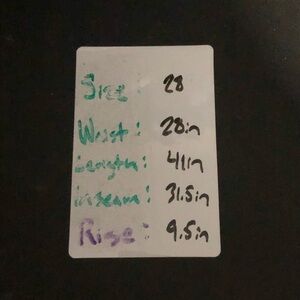 Size: 28
Waist: 28in
Length: 41in
Inseam: 31.5in
Rise: 9.5in